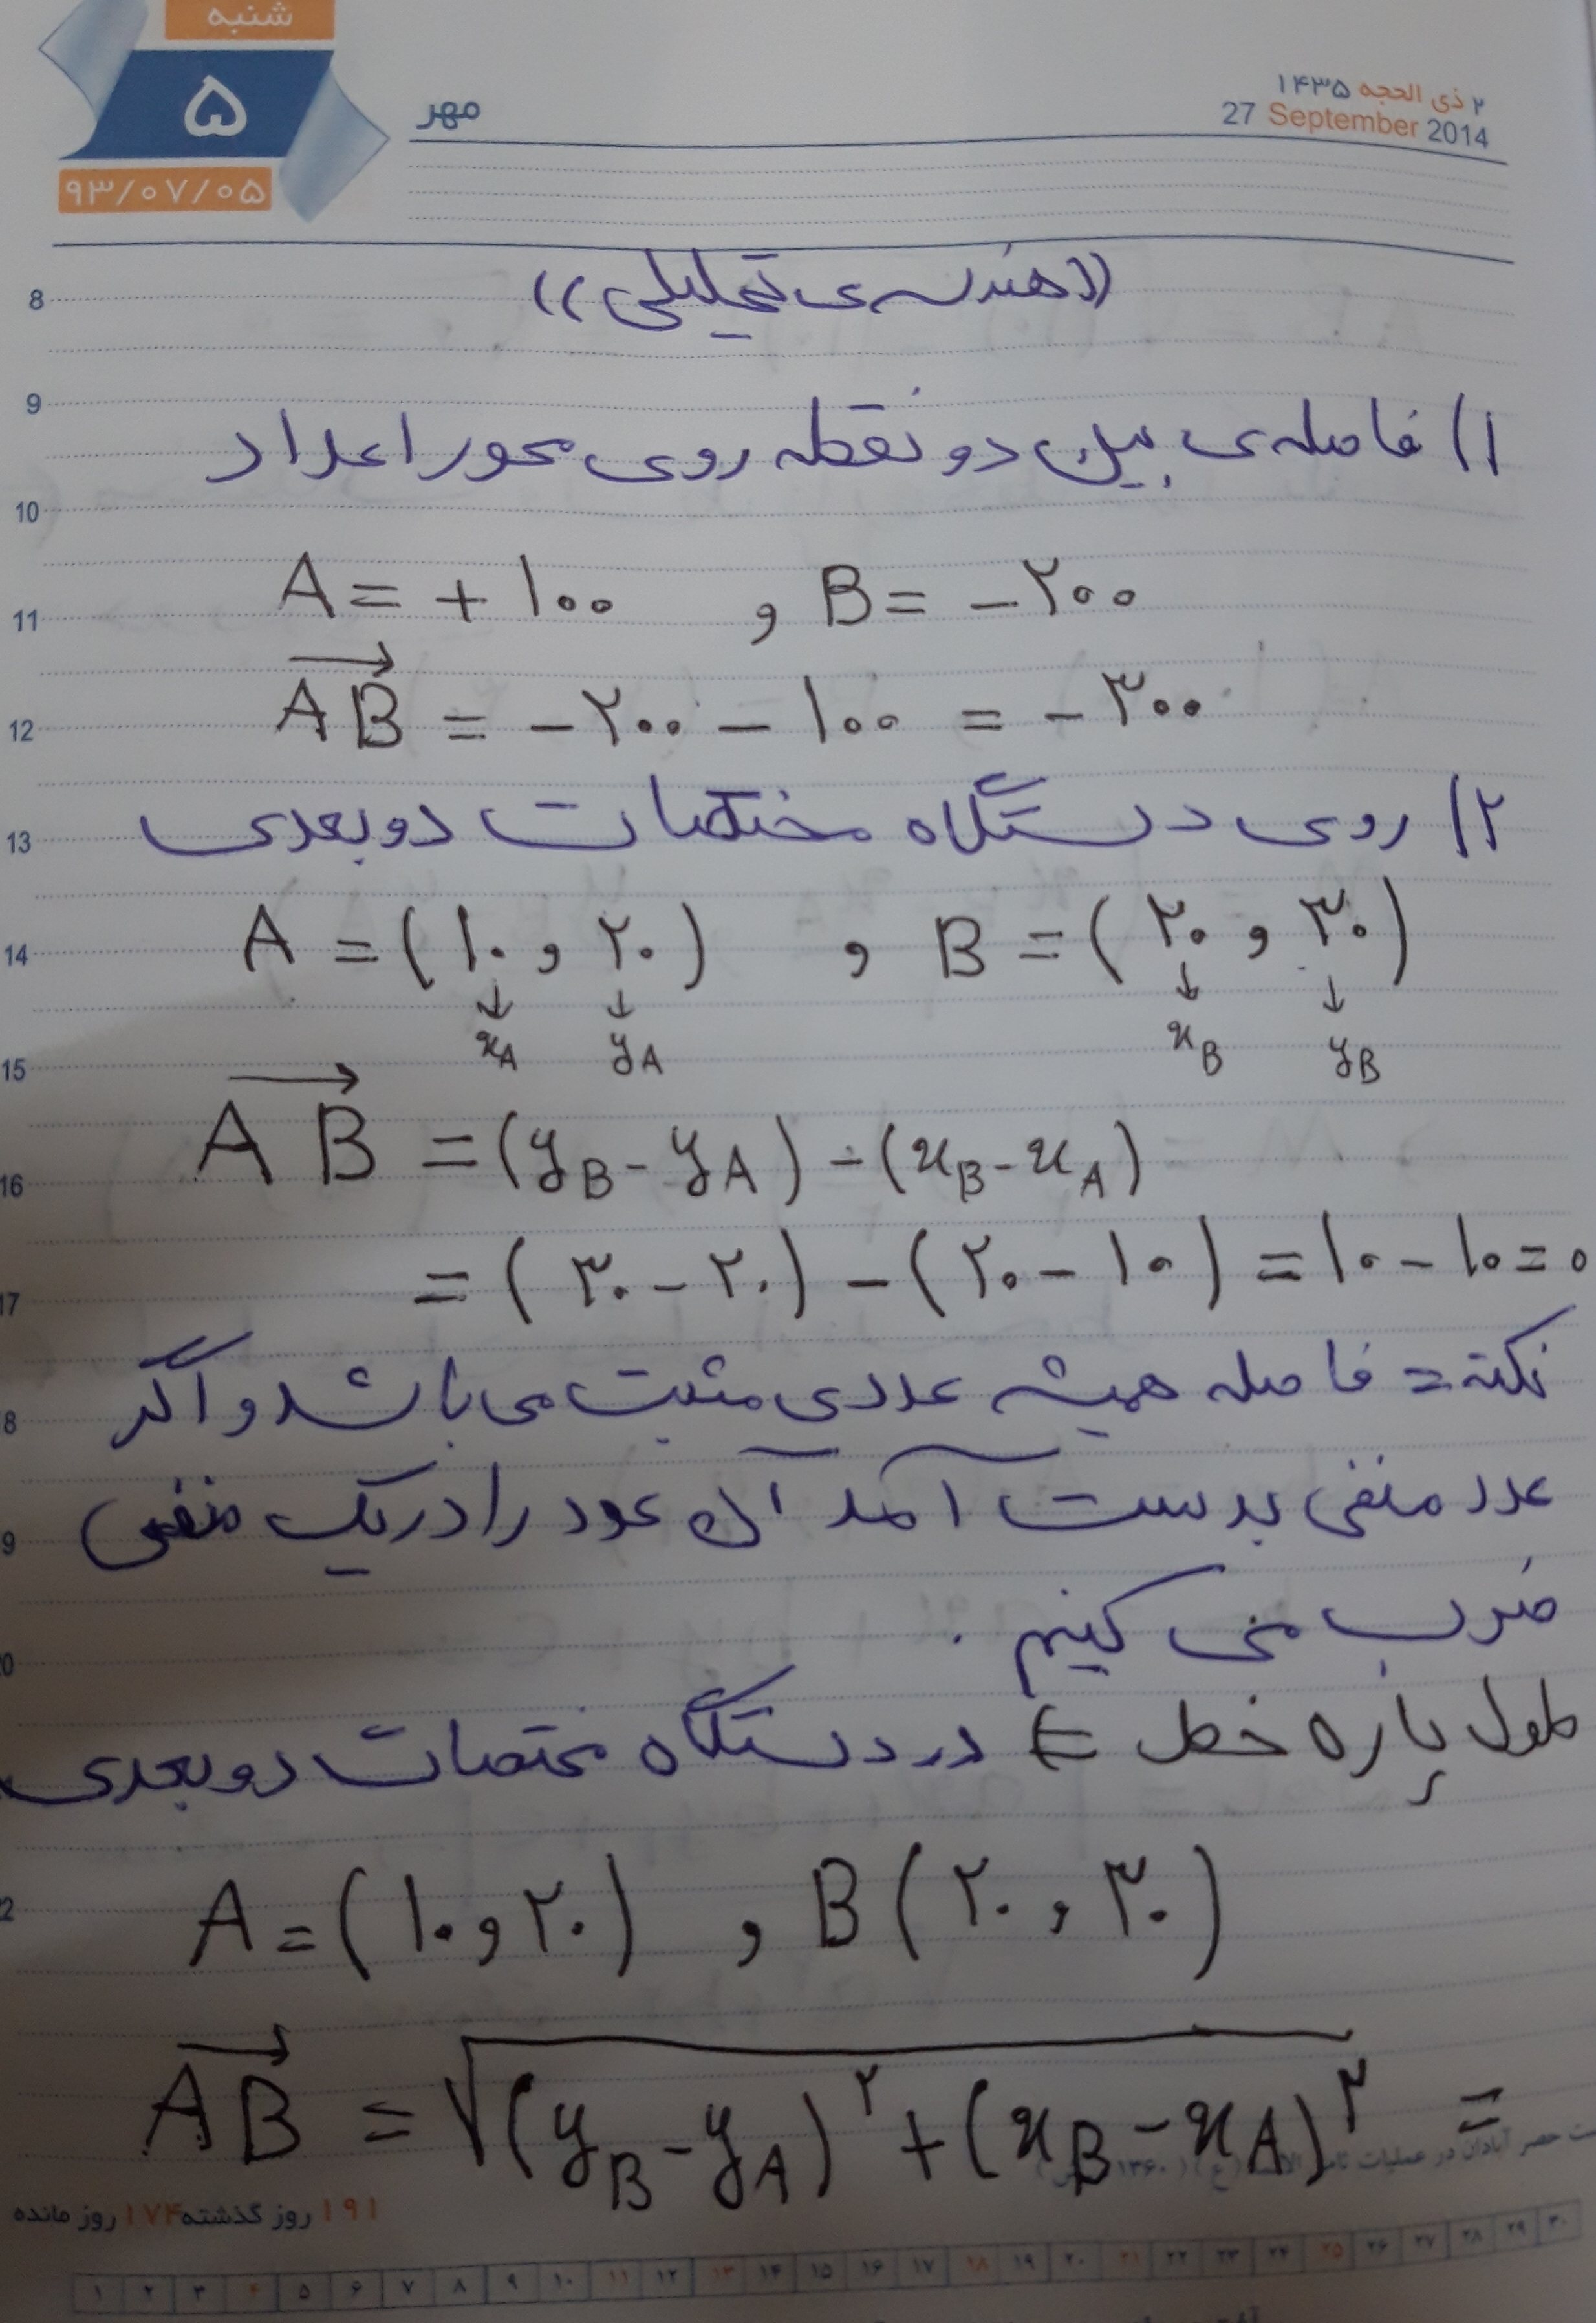 شنبه
۵
۹۳/۰۷/۰۵
مهر
۲ ذی الحجه ۱۴۳۵
27 September 2014
((هندسه‌ی تحلیلی))
8
9
۱) فاصله‌ی بین دو نقطه روی محور اعداد
10
A = + ۱۰۰ , B = - ۲۰۰
11
AB = - ۲۰۰ - ۱۰۰ = - ۳۰۰
12
۲) روی دستگاه مختصات دو بعدی
13
A = (۱۰ , ۲۰) , B = (۲۰ , ۳۰)
14
↓ ↓ ↓ ↓
x_A y_A x_B y_B
15
AB = (y_B - y_A) - (x_B - x_A)
16
= (۳۰ - ۲۰) - (۲۰ - ۱۰) = ۱۰ - ۱۰ = ۰
17
نکته = فاصله همیشه عددی مثبت می باشد و اگر
8
عدد منفی بدست آمد آن عود را در یک منفی
9
ضرب می کنیم .
0
طول پاره خط ∈ در دستگاه مختصات دو بعدی
A = (۱۰ , ۲۰) , B (۲۰ , ۳۰)
2
AB = √(y_B - y_A)^۲ + (x_B - x_A)^۲ =
ت حصر آبادان در عملیات
۱۹۱ روز گذشته ۱۷۴ روز مانده
۱ ۲ ۳ ۴ ۵ ۶ ۷ ۸ ۹ ۱۰ ۱۱ ۱۲ ۱۳ ۱۴ ۱۵ ۱۶ ۱۷ ۱۸ ۱۹ ۲۰ ۲۱ ۲۲ ۲۳ ۲۴ ۲۵ ۲۶ ۲۷ ۲۸ ۲۹ ۳۰